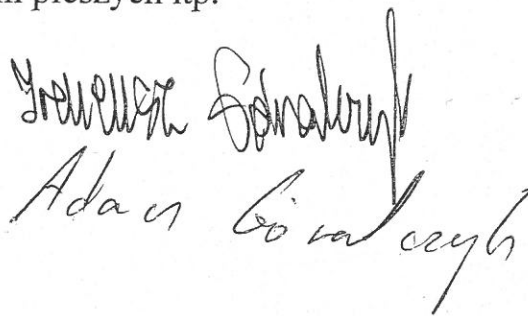 pieszych itp.
Ireneusz Góralczyk
Adam Góralczyk